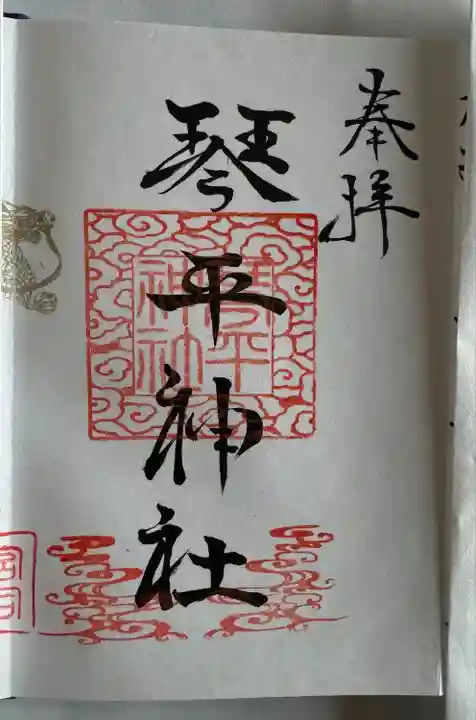 奉拝
琴平神社
琴平
神社